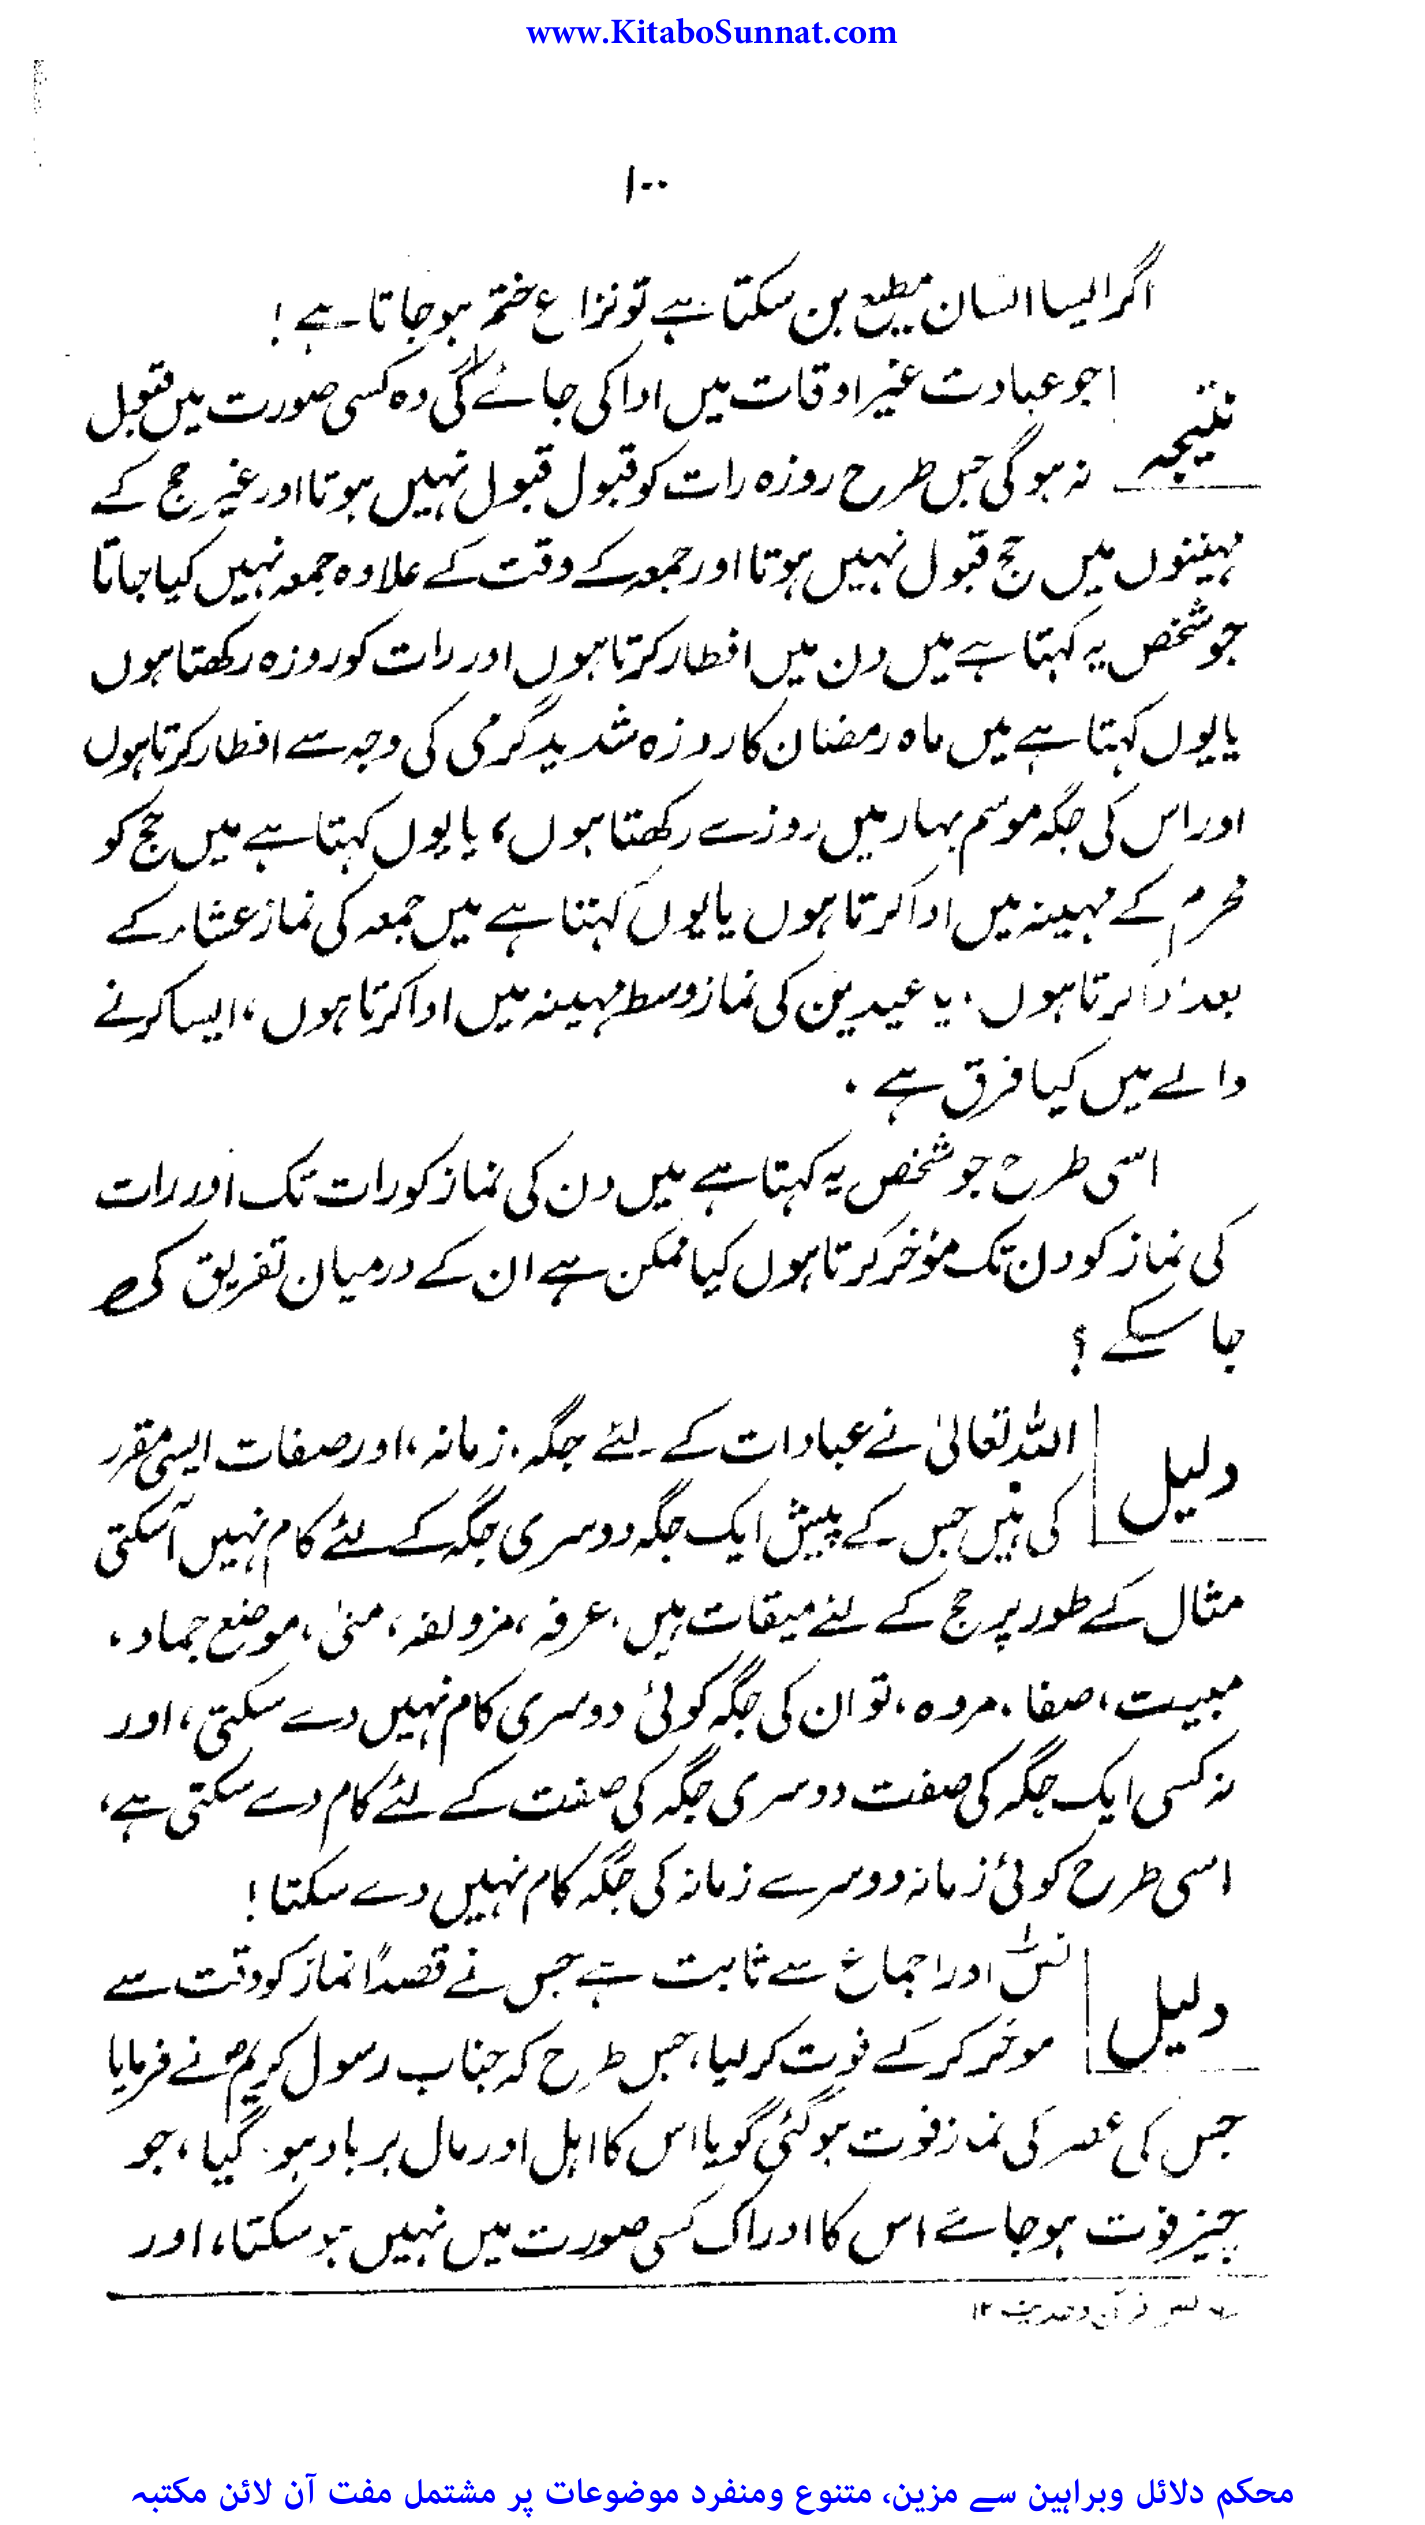 www.KitaboSunnat.com
۱۰۰
اگر ایسا انسان مطیع بن سکتا ہے تو نزاع ختم ہو جاتا ہے !
نتیجہ
جو عبادت غیر اوقات میں ادا کی جائے گی وہ کسی صورت میں قبول
نہ ہوگی جس طرح روزہ رات کو قبول قبول نہیں ہوتا اور غیر حج کے
مہینوں میں حج قبول نہیں ہوتا اور جمعہ کے وقت کے علاوہ جمعہ نہیں کیا جاتا
جو شخص یہ کہتا ہے میں دن میں افطار کرتا ہوں اور رات کو روزہ رکھتا ہوں
یا یوں کہتا ہے میں ماہ رمضان کا روزہ شدید گرمی کی وجہ سے افطار کرتا ہوں
اور اس کی جگہ موسم بہار میں روزے رکھتا ہوں، یا یوں کہتا ہے میں حج کو
محرم کے مہینہ میں ادا کرتا ہوں یا یوں کہتا ہے میں جمعہ کی نماز عشاء کے
بعد ادا کرتا ہوں، یا عیدین کی نماز وسط مہینہ میں ادا کرتا ہوں، ایسا کرنے
والے میں کیا فرق ہے ۔
اسی طرح جو شخص یہ کہتا ہے میں دن کی نماز کو رات تک اور رات
کی نماز کو دن تک مؤخر کرتا ہوں کیا ممکن ہے ان کے درمیان تفریق کی
جا سکے ؟
دلیل
اللہ تعالیٰ نے عبادات کے لئے جگہ، زمانہ، اور صفات ایسی مقرر
کی ہیں جس کے پیش ایک جگہ دوسری جگہ کے لئے کام نہیں آسکتی
مثال کے طور پر حج کے لئے میقات ہیں، عرفہ، مزولفہ، منیٰ، موضع جماد،
مبیت، صفا، مروہ، تو ان کی جگہ کوئی دوسری کام نہیں دے سکتی، اور
نہ کسی ایک جگہ کی صفت دوسری جگہ کی صفت کے لئے کام دے سکتی ہے،
اسی طرح کوئی زمانہ دوسرے زمانہ کی جگہ کام نہیں دے سکتا !
دلیل
نص اور اجماع سے ثابت ہے جس نے قصداً نماز کو وقت سے
موخر کر کے فوت کر لیا، جس طرح کہ جناب رسول کریمؐ نے فرمایا
جس کی عصر کی نماز فوت ہو گئی گویا اس کا اہل اور مال برباد ہو گیا، جو
چیز فوت ہو جائے اس کا ادراک کسی صورت میں نہیں ہو سکتا، اور
نص قرآن و حدیث ۱۲
محکم دلائل وبراہین سے مزین، متنوع ومنفرد موضوعات پر مشتمل مفت آن لائن مکتبہ